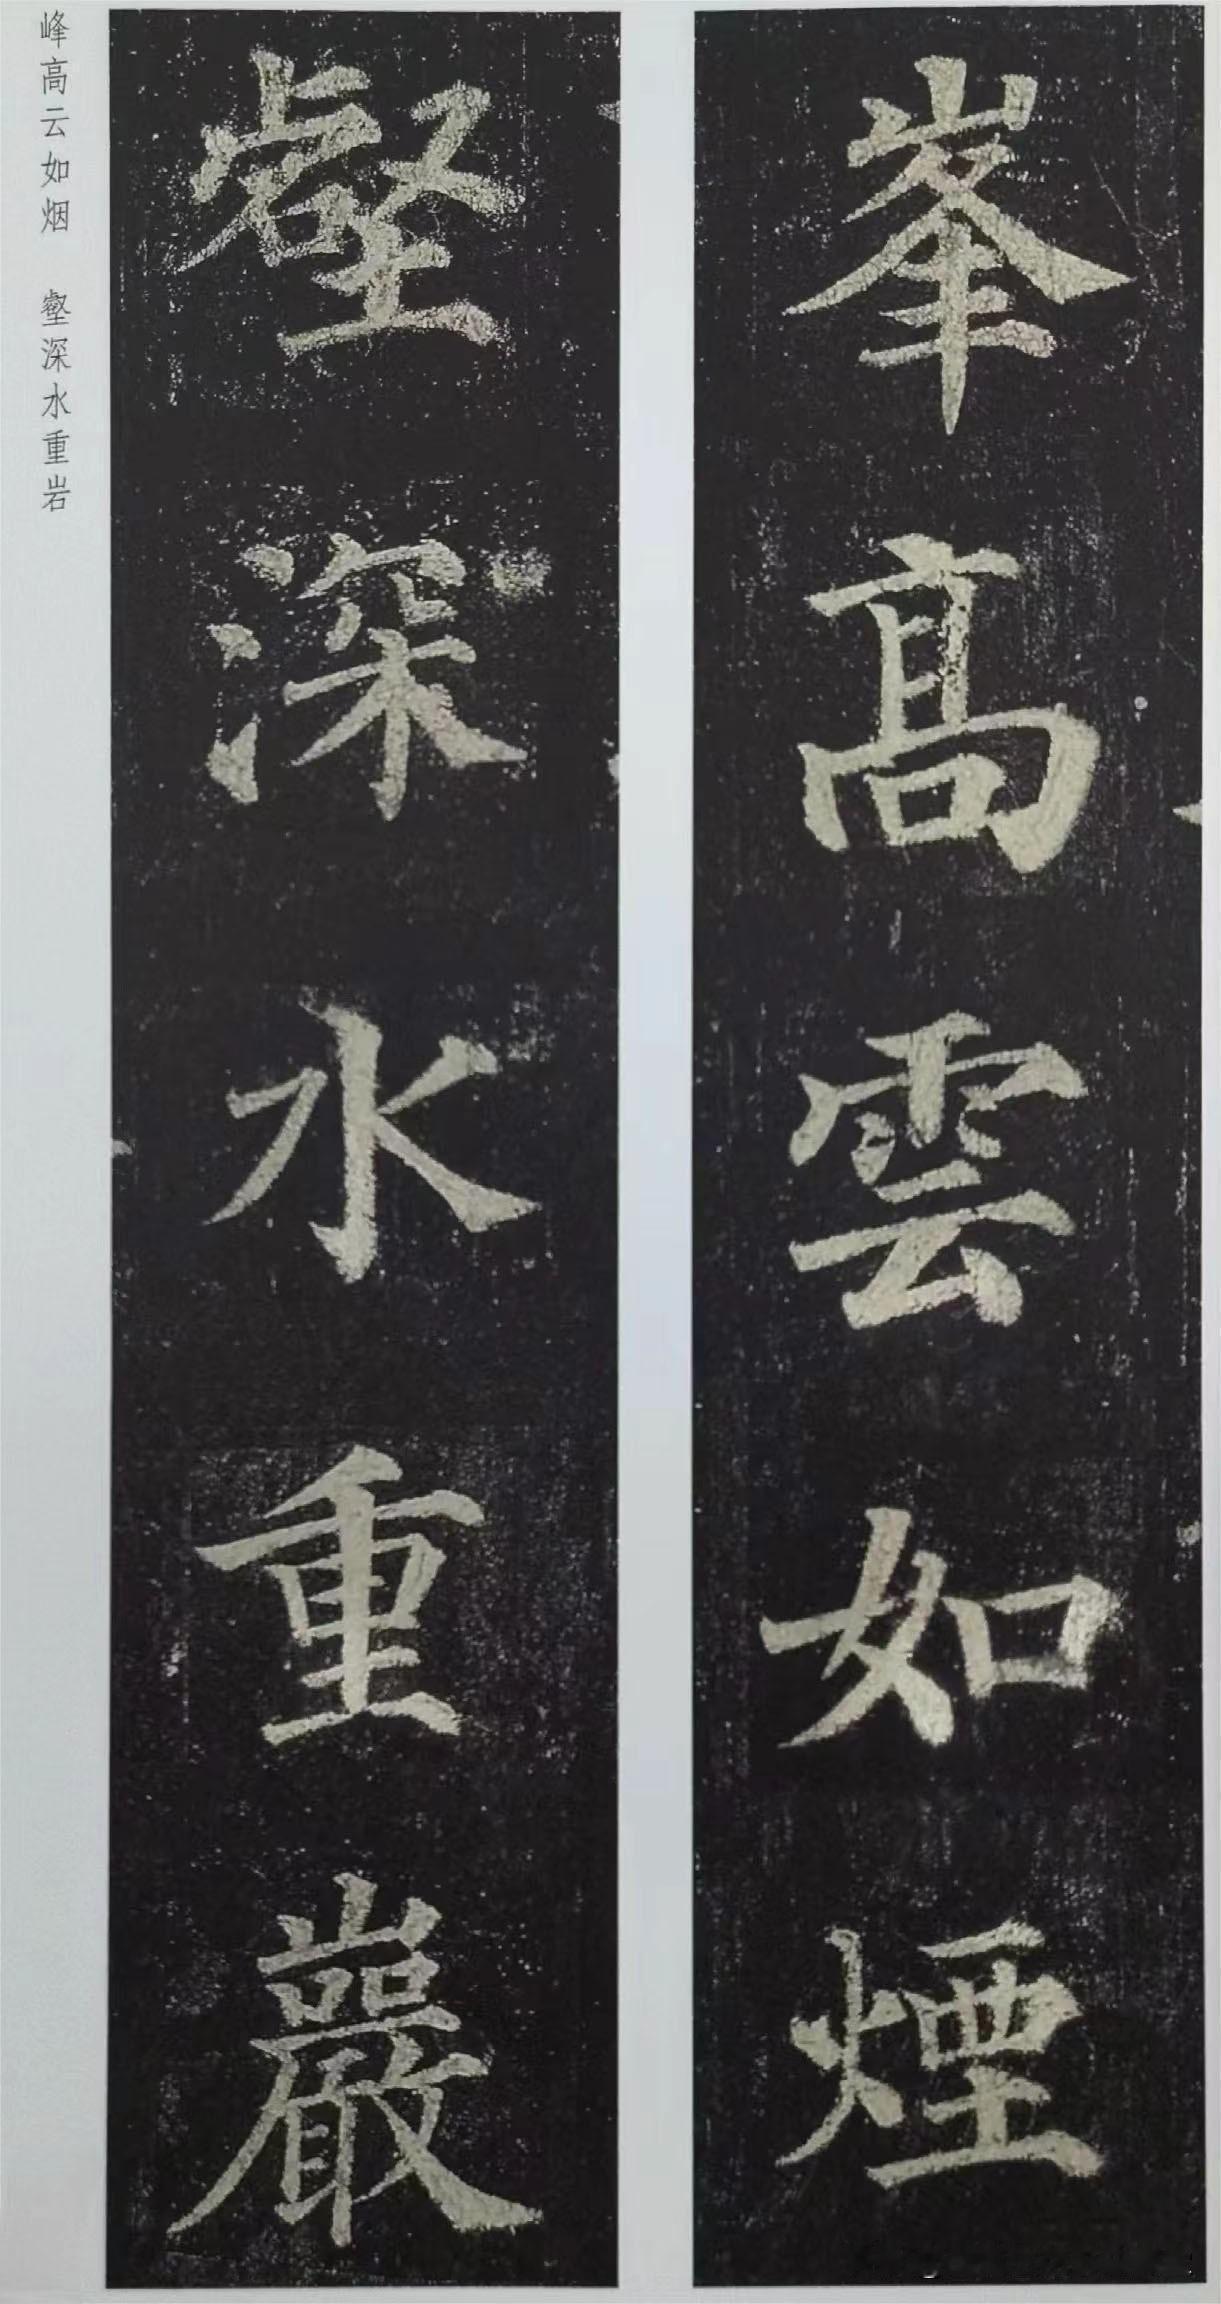 峯高雲如煙
壑深水重巖
峰高云如烟 壑深水重岩